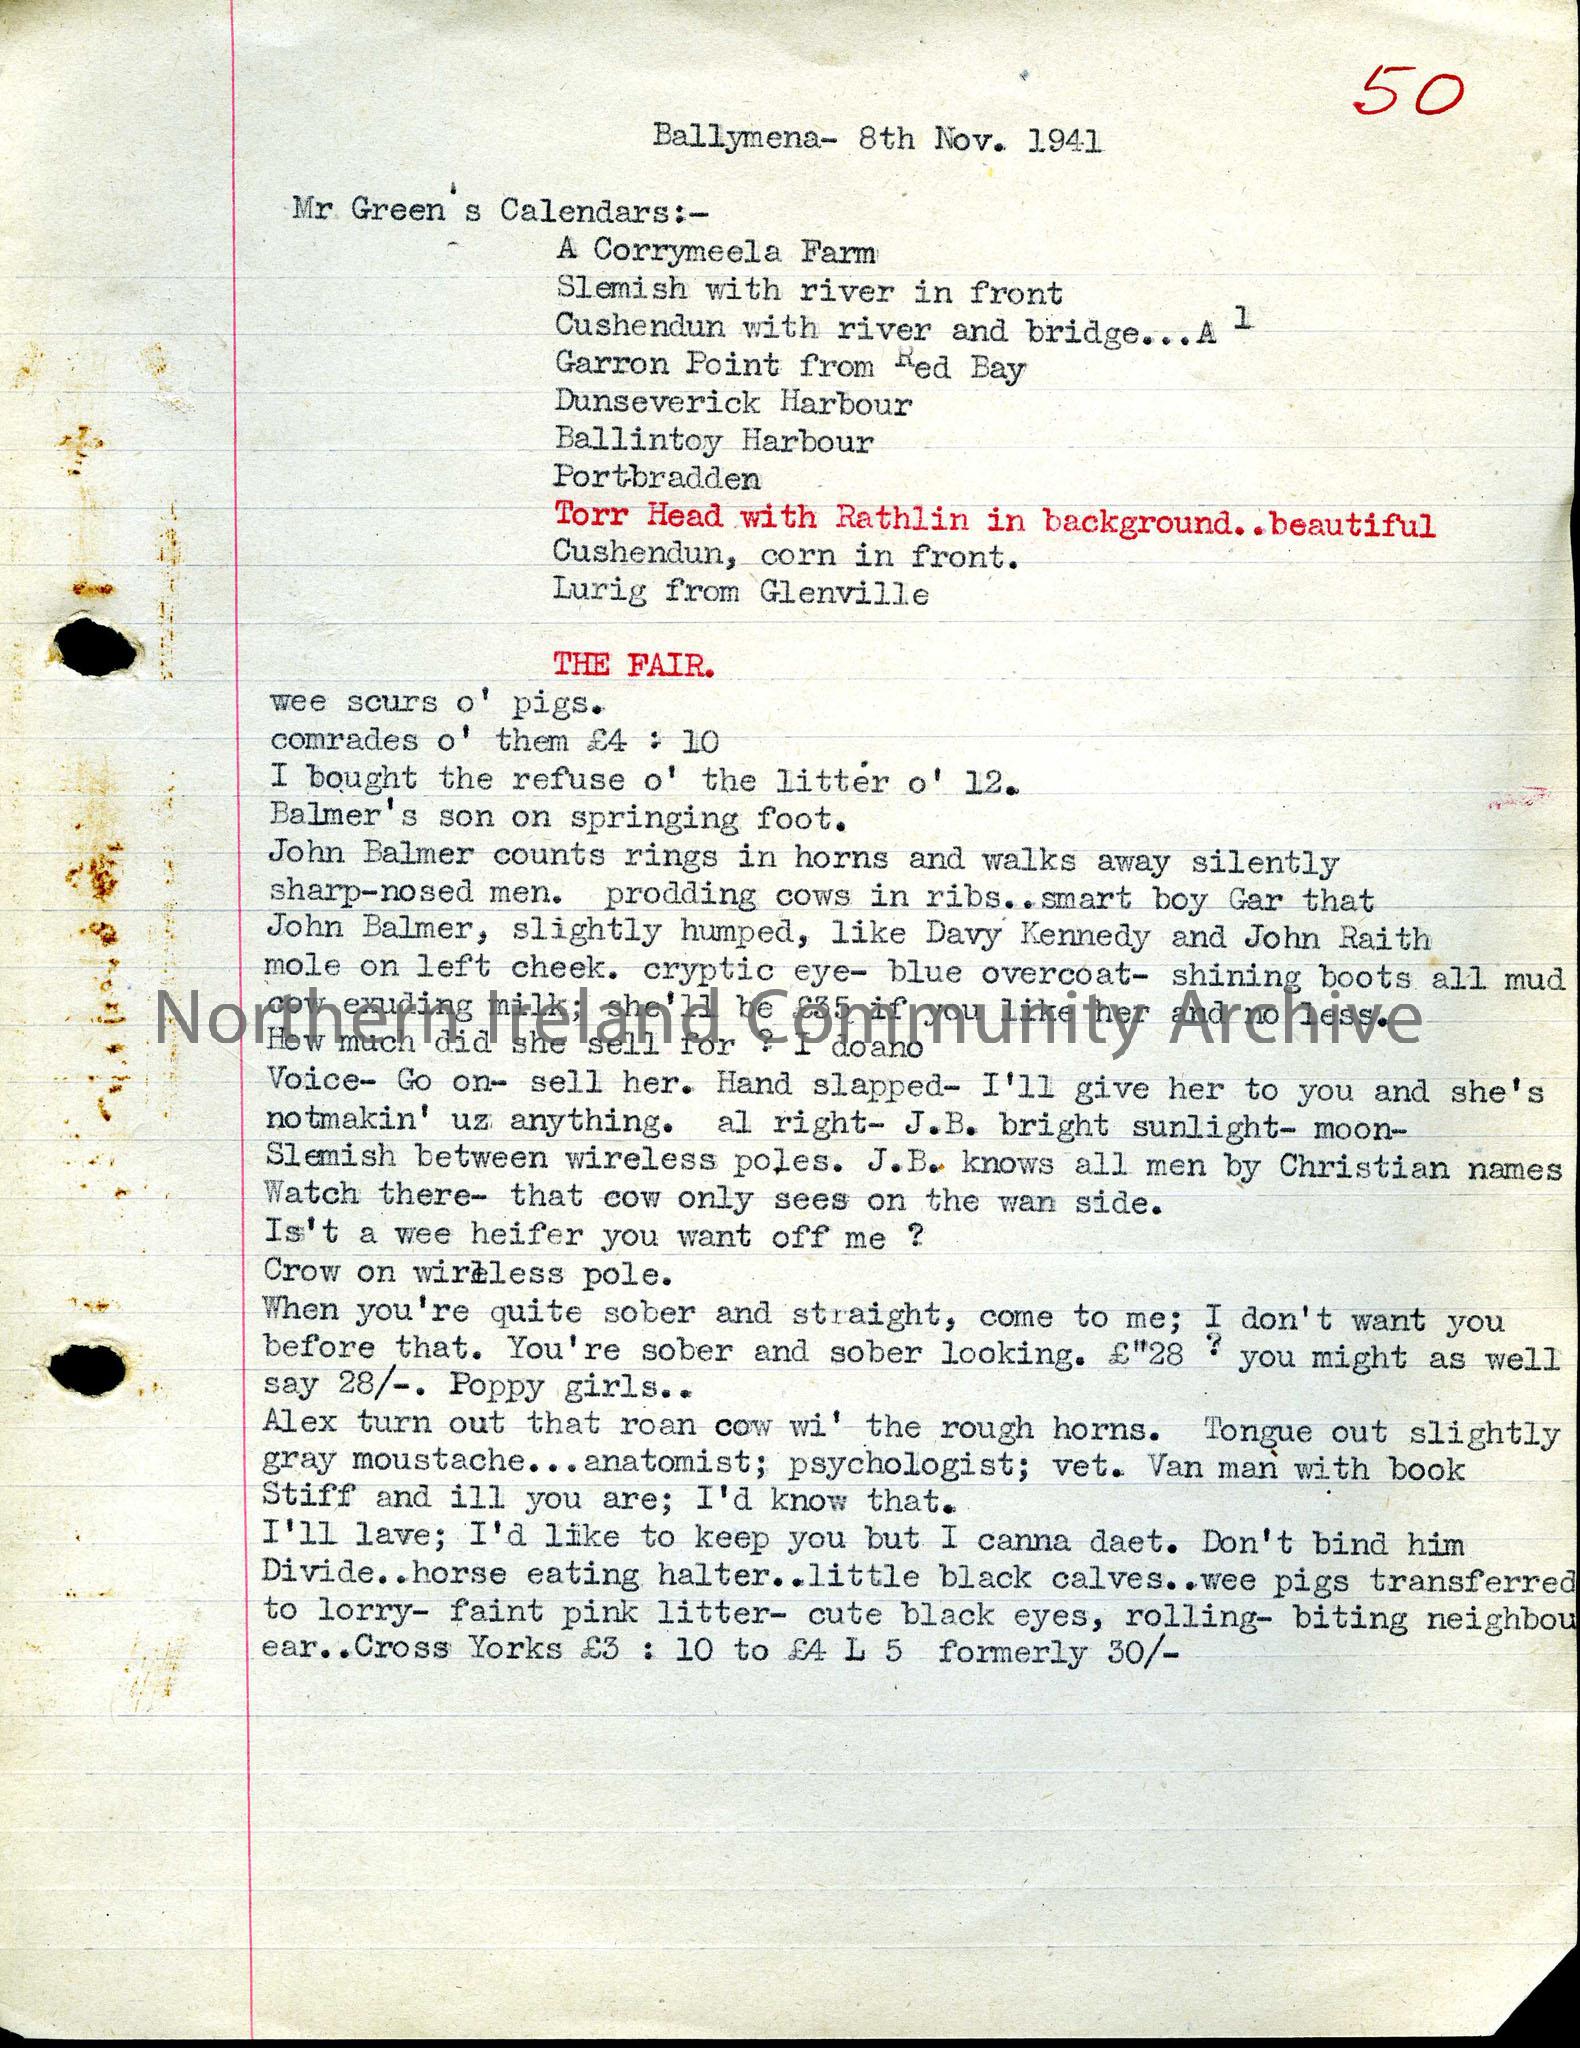 50
Ballymena- 8th Nov. 1941
Mr Green's Calendars:-
A Corrymeela Farm
Slemish with river in front
Cushendun with river and bridge...A 1
Garron Point from Red Bay
Dunseverick Harbour
Ballintoy Harbour
Portbradden
Torr Head with Rathlin in background..beautiful
Cushendun, corn in front.
Lurig from Glenville
THE FAIR.
wee scurs o' pigs.
comrades o' them £4 : 10
I bought the refuse o' the litter o' 12.
Balmer's son on springing foot.
John Balmer counts rings in horns and walks away silently
sharp-nosed men. prodding cows in ribs..smart boy Gar that
John Balmer, slightly humped, like Davy Kennedy and John Raith
mole on left cheek. cryptic eye- blue overcoat- shining boots all mud
cow exuding milk; she'll be £35 if you like her and no less.
Northern Ireland Community Archive
How much did she sell for ? I doano
Voice- Go on- sell her. Hand slapped- I'll give her to you and she's
notmakin' uz anything. al right- J.B. bright sunlight- moon-
Slemish between wireless poles. J.B. knows all men by Christian names
Watch there- that cow only sees on the wan side.
Is't a wee heifer you want off me ?
Crow on wireless pole.
When you're quite sober and straight, come to me; I don't want you
before that. You're sober and sober looking. £"28 ? you might as well
say 28/-. Poppy girls..
Alex turn out that roan cow wi' the rough horns. Tongue out slightly
gray moustache...anatomist; psychologist; vet. Van man with book
Stiff and ill you are; I'd know that.
I'll lave; I'd like to keep you but I canna daet. Don't bind him
Divide..horse eating halter..little black calves..wee pigs transferred
to lorry- faint pink litter- cute black eyes, rolling- biting neighbou
ear..Cross Yorks £3 : 10 to £4 L 5 formerly 30/-